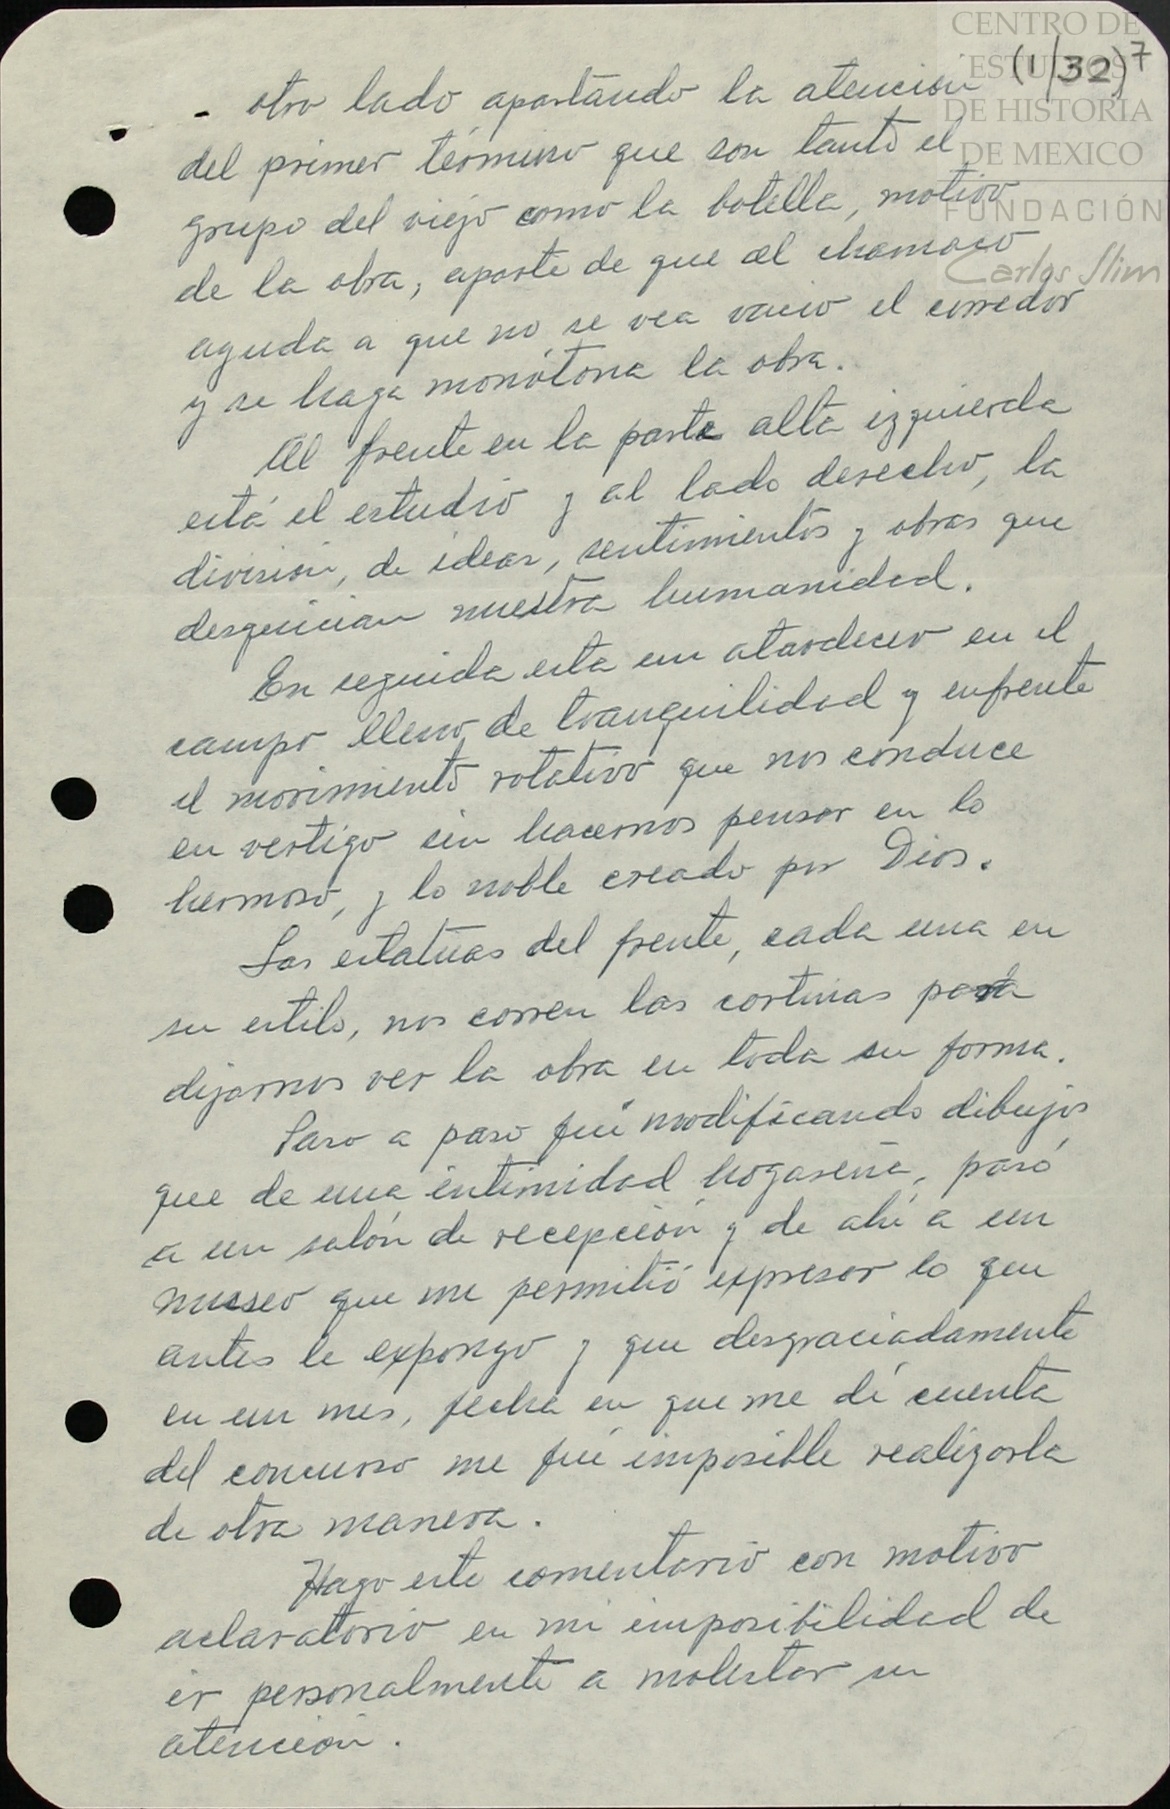 CENTRO DE
ESTUDIOS
DE HISTORIA
DE MEXICO
FUNDACIÓN
Carlos Slim
(1/32) 7
- otro lado apartando la atencion
del primer término que son tanto el
grupo del viejo como la botella, motivo
de la obra, aparte de que el chamaco
ayuda a que no se vea vacio el corredor
y se haga monótona la obra.
Al frente en la parte alta izquierda
está el estudio y al lado derecho, la
division, de ideas, sentimientos y obras que
desquician nuestra humanidad.
En seguida esta un atardecer en el
campo lleno de tranquilidad y enfrente
el movimiento rotativo que nos conduce
en vertigo sin hacernos pensar en lo
hermoso, y lo noble creado por Dios.
Las estatuas del frente, cada una en
su estilo, nos corren las cortinas para
dejarnos ver la obra en toda su forma.
Paso a paso fui modificando dibujos
que de una intimidad hogareña, pasó
a un salón de recepción y de ahí a un
museo que me permitió expresar lo que
antes le expongo y que desgraciadamente
en un mes, fecha en que me dí cuenta
del concurso me fué imposible realizarla
de otra manera.
Hago este comentario con motivo
aclaratorio en mi imposibilidad de
ir personalmente a molestar su
atención.